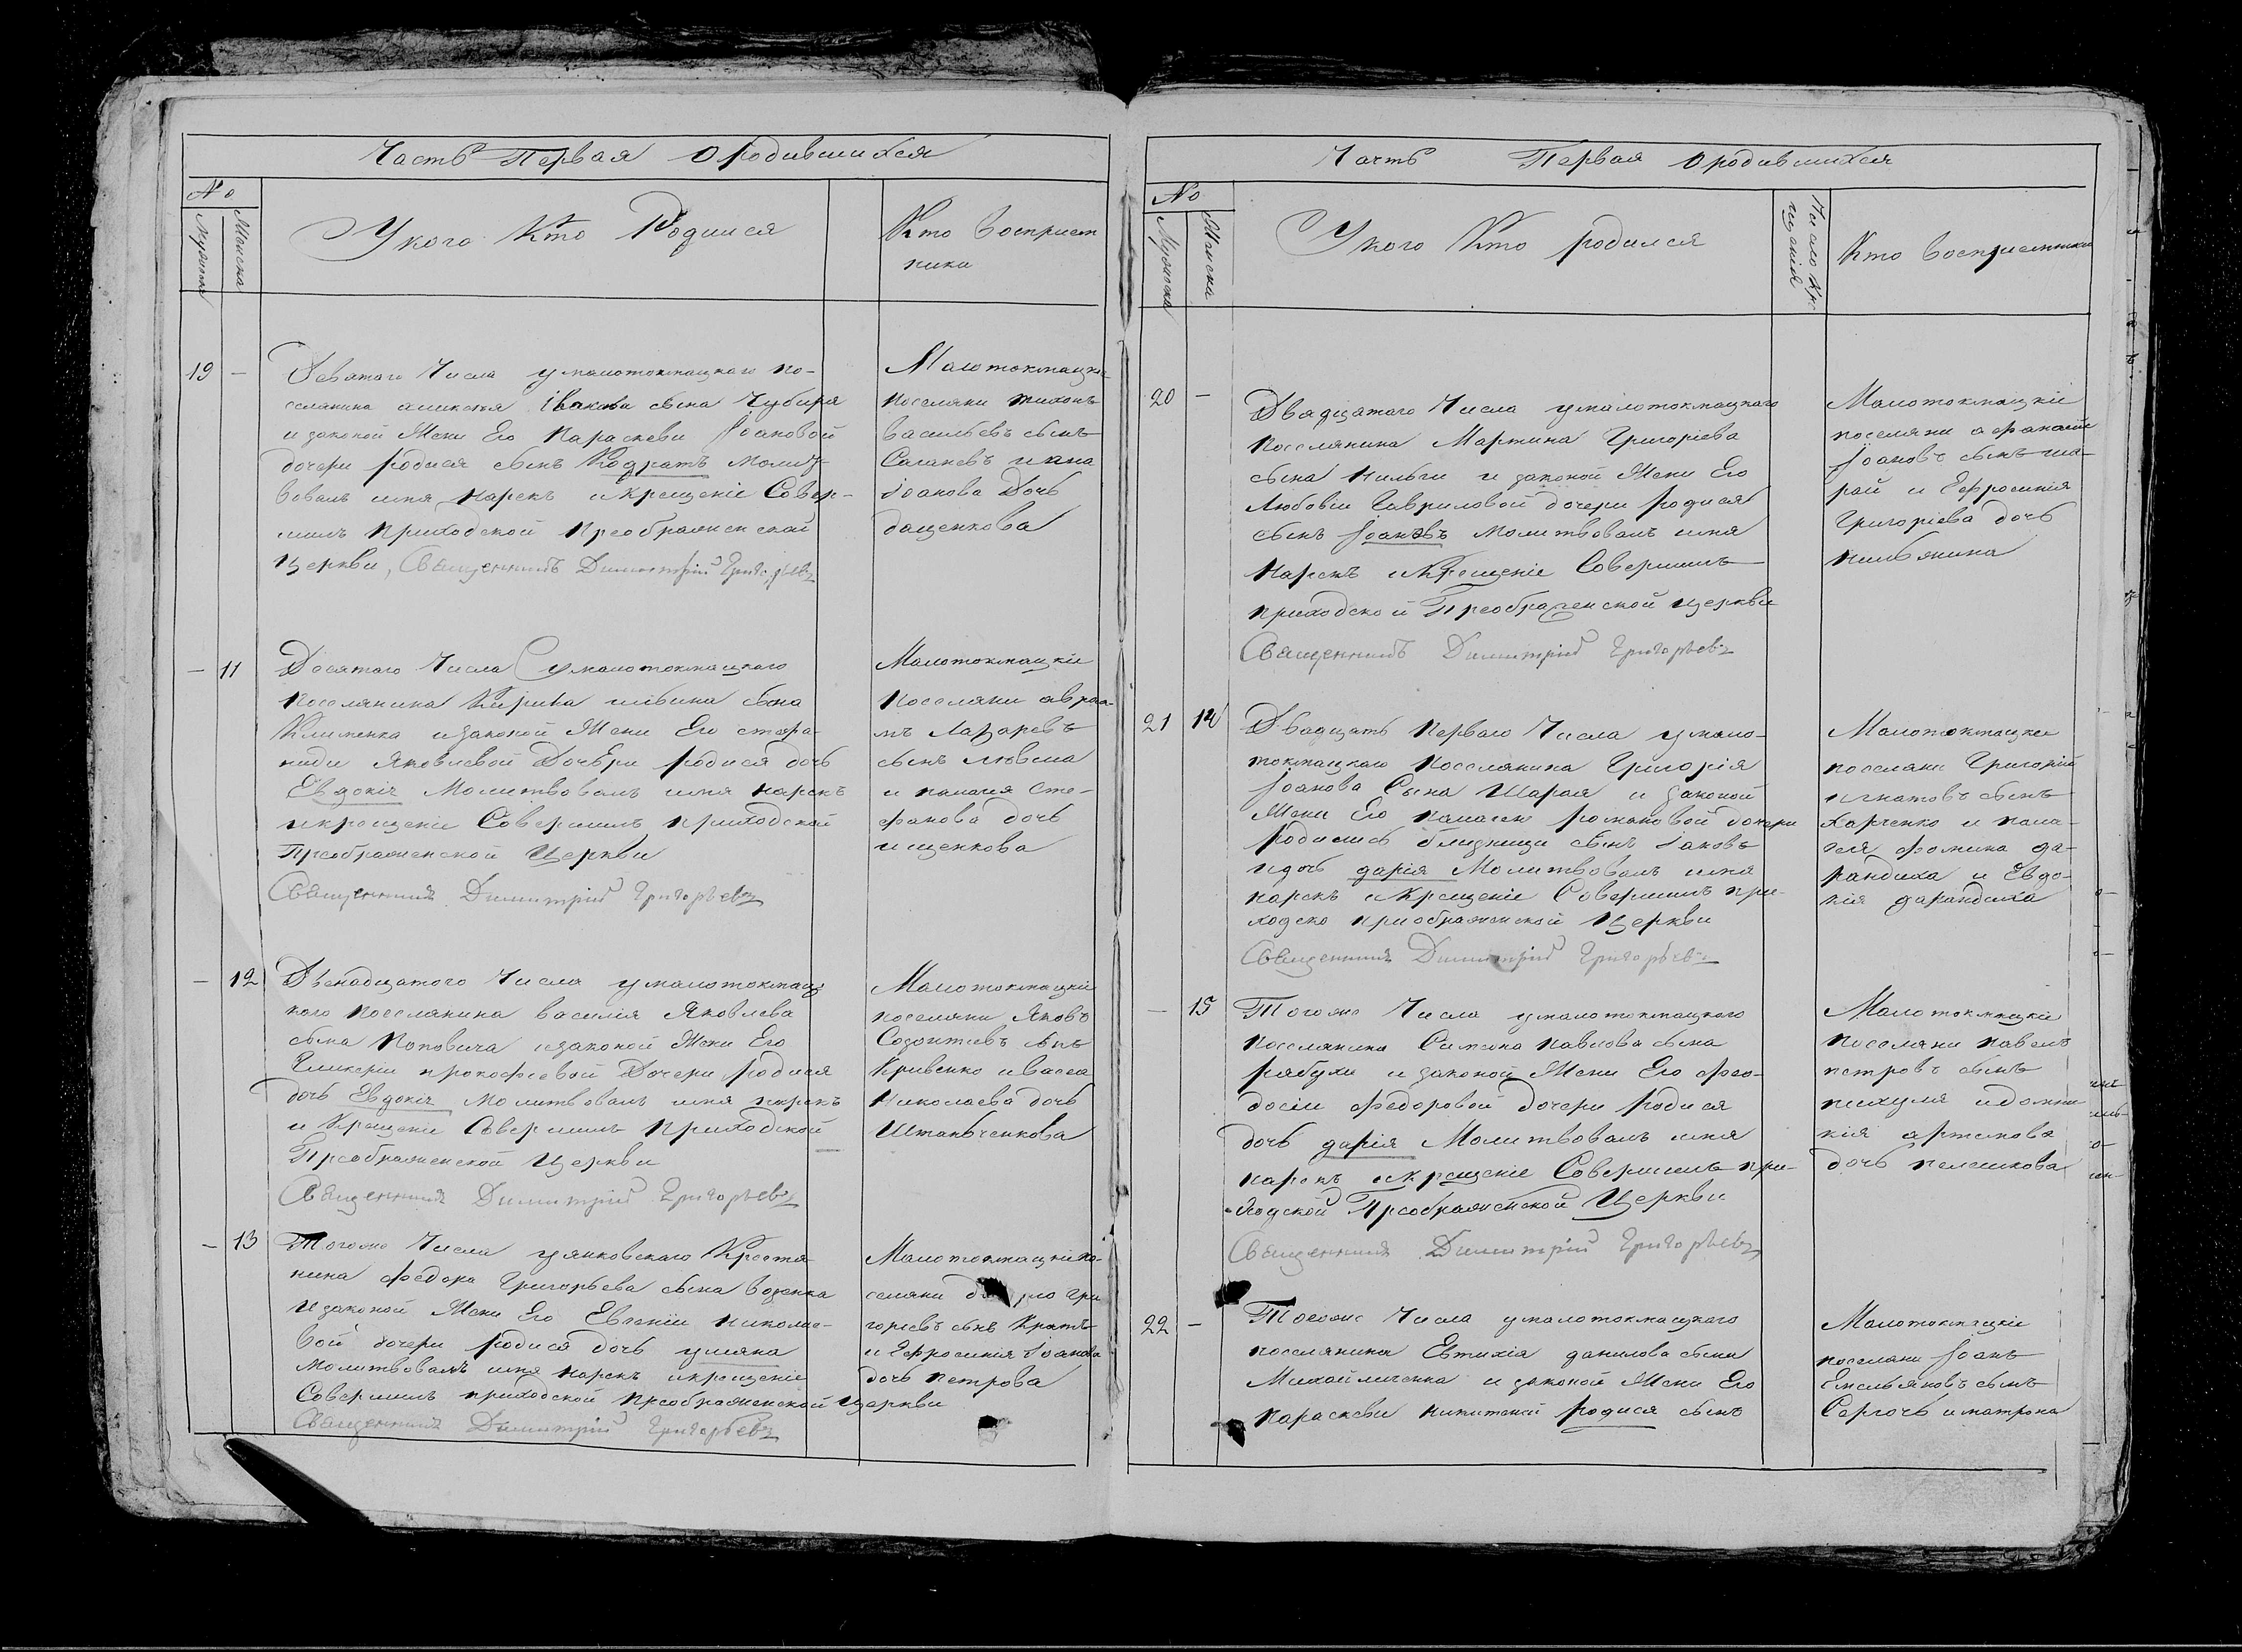 Часть Первая О родившихся
No
Мужска
Женска
У кого Кто Родился
Кто Восприем
ники
19 —
Деватого Числа умалотокмацкого по-
селянина Іванова сына Чубиря
и законой Жени Его Параскеви Іоановой
дочери родися сынъ Кодратъ молит-
вовалъ имя нарекъ икрещеніе Совер-
шилъ Приходской Преображенской
Церкви, Священникъ Димитрій Григорьевъ
Малотокмацкіе
поселяни тихонъ
Васильевъ сынъ
и
Іоанова Дочь
дащенкова
— 11
Десятого Числа умалотокмацкого
поселянина сына
Клименка изаконой Жени Его степа-
ниди Яковлевой Дочери родися дочь
Евдокіч Молитвовалъ имя нарекъ
икрещеніе Совершилъ приходской
Преображенской Церкви
Священникъ Димитрій Григорьевъ
Малотокмацкіе
Поселяни авраа-
мъ Лазаревъ
сынъ
и палагия Сте-
фанова дочь
ищенкова
— 12
Двенадцатого Числа умалотокмац
кого поселянина василія Яковлева
сына Поповича изаконой Жени Его
Гликерии прокофіевой Дочери родися
дочь Евдокіч молитвовалъ имя нарекъ
и Крещеніе Совершилъ Приходской
Преображенской Церкви
Священникъ Димитрій Григорьевъ
Малотокмацкіе
поселяни Яковъ
Созонтиевъ сынъ
Кривенко иваса
Николаева дочь
— 13
Тогоже Числа уянковского Крестя-
нина федора Григорьева сына
изаконой Жени Его Евгеніи николае-
вой дочери родися дочь уляна
молитвовалъ имя нарекъ икрещеніе
Совершилъ приходской преображенской Церкви
Священникъ Димитрій Григорьевъ
Малотокмацкіе по-
селяни Гри
горіевъ сынъ
и Ефросинія Іоанова
дочь петрова
Часть Первая О родившихся
No
Мужска
Женска
У кого Кто родился
Число Кре
щенія
Кто восприемники
20 —
Двадцатого Числа умалотокмацкого
поселянина Мартина Григоріева
сына и законой Жени Его
Любовіи Гавриловой дочери родися
сынъ Іоановъ молитвовалъ имя
нарекъ икрещеніе Совершилъ
приходской Преображенской церкви
Священникъ Димитрій Григорьевъ
Малотокмацкіе
поселяни афанасіи
Іоановъ сынъ ша-
рай и Ефросинія
Григоріева дочь
21 14
Двадцать Перваго Числа умало-
токмацкаго поселянина Григорія
Іоанова Сына Шарая и законой
Жени Его палагеи романовой дочери
Родились близници сынъ Іаковъ
идочь дарія Молитвовалъ имя
нарекъ икрещеніе Совершилъ при-
ходско приображенской Церкви
Священникъ Димитрій Григорьевъ
Малотокмацкіе
поселяни Григорій
игнатовъ сынъ
Харченко и пала-
гея фомина га-
рандиха и Евдо-
кія гарандиха
— 15
Тогоже Числа умалотокмацкого
поселянина Симеона павлова сына
рябухи и законой Жени Его фео-
досіи федоровой дочери родися
дочь дарія Молитвовалъ имя
нарекъ икрещеніе Совершилъ при-
ходской Преображенской Церкви
Священникъ Димитрій Григорьевъ
Малотокмацкіе
поселяни павелъ
петровъ сынъ
идомни-
кія артемова
дочь
22 —
Тогоже Числа умалотокмацкого
поселянина Евтихія данилова сына
Михайличенка и законой Жени Его
параскеви никитеной родися сынъ
Малотокмацкіе
поселяни Іоанъ
Емельяновъ сынъ
иматрона